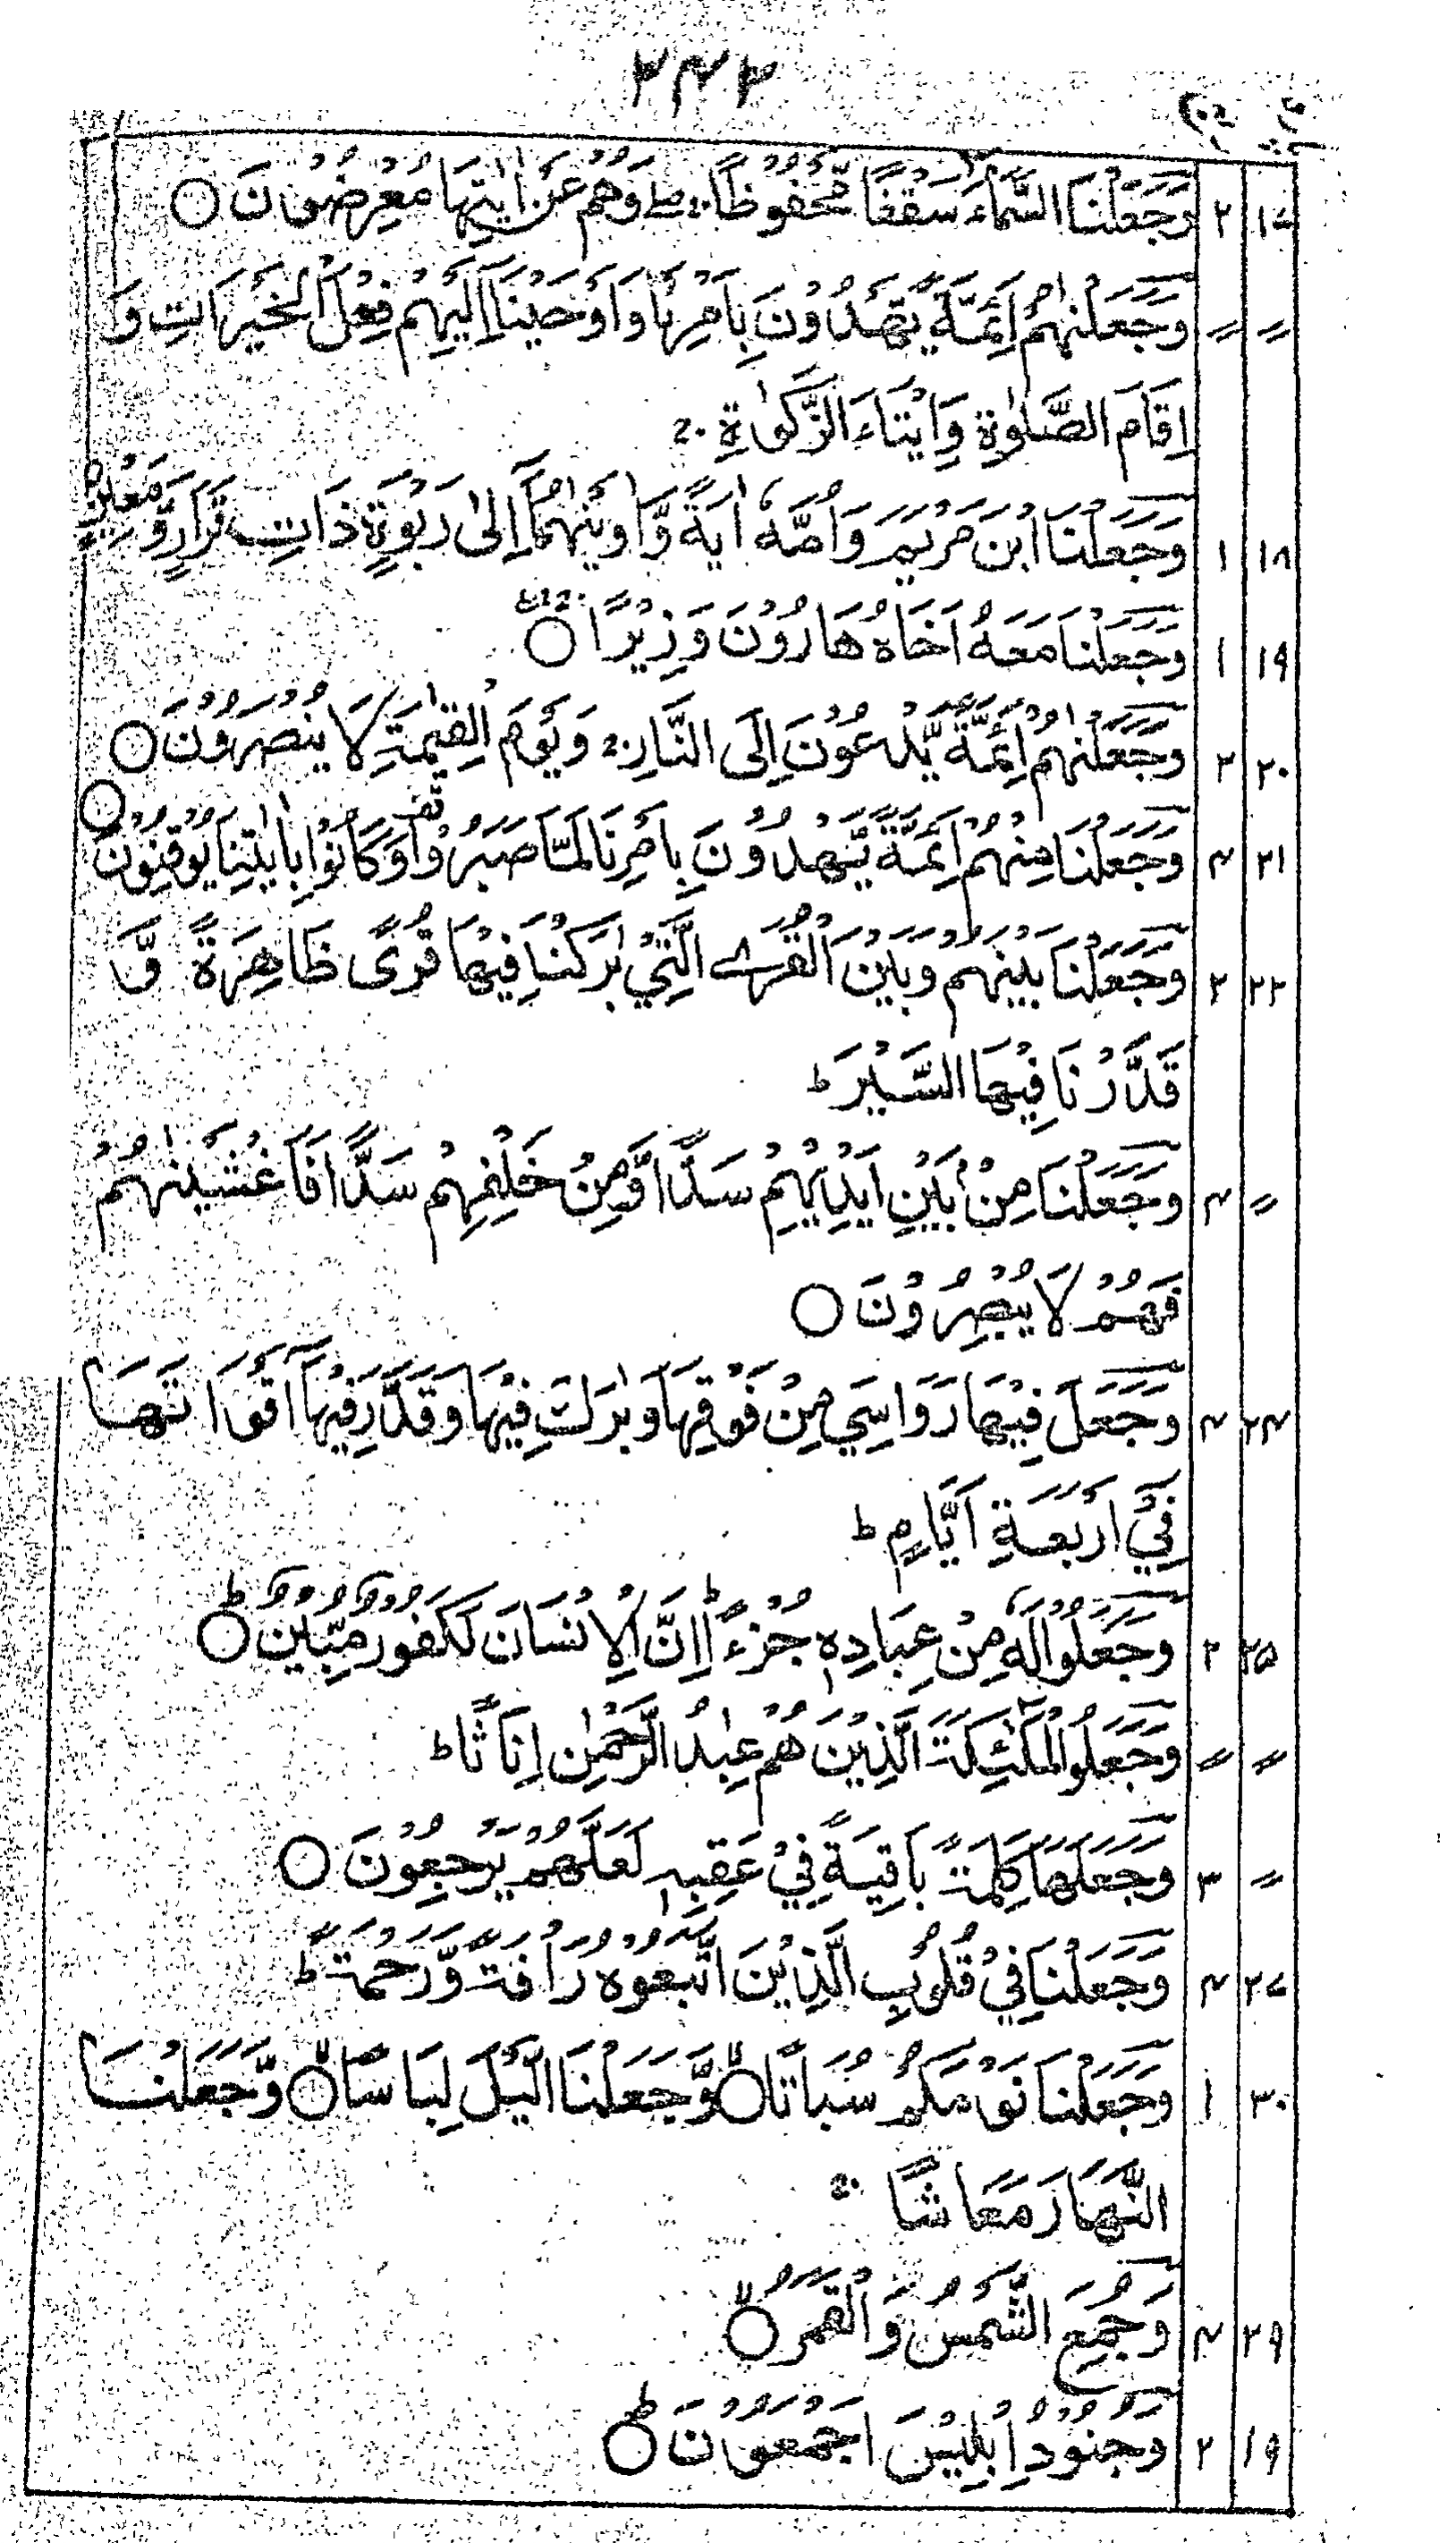 ۳۴۲
۱۷ ۲ وَجَعَلْنَا السَّمَآءَ سَقْفًا مَّحْفُوْظًا ۖ وَّهُمْ عَنْ اٰيٰتِهَا مُعْرِضُوْنَ ○
〃 〃 وَجَعَلْنٰهُمْ اَئِمَّةً يَّهْدُوْنَ بِاَمْرِنَا وَاَوْحَيْنَا اِلَيْهِمْ فِعْلَ الْخَيْرَاتِ وَ
اِقَامَ الصَّلٰوةِ وَاِيْتَاءَ الزَّكٰوةِ
۱۸ ۱ وَجَعَلْنَا ابْنَ مَرْيَمَ وَاُمَّهٗ اٰيَةً وَّاٰوَيْنٰهُمَآ اِلٰى رَبْوَةٍ ذَاتِ قَرَارٍ وَّمَعِيْنٍ
۱۹ ۱ وَجَعَلْنَا مَعَهٗ اَخَاهُ هَارُوْنَ وَزِيْرًا ○
۲۰ ۲ وَجَعَلْنٰهُمْ اَئِمَّةً يَّدْعُوْنَ اِلَى النَّارِ وَيَوْمَ الْقِيٰمَةِ لَا يُنْصَرُوْنَ ○
۲۱ ۴ وَجَعَلْنَا مِنْهُمْ اَئِمَّةً يَّهْدُوْنَ بِاَمْرِنَا لَمَّا صَبَرُوْا وَكَانُوْا بِاٰيٰتِنَا يُوْقِنُوْنَ ○
۲۲ ۲ وَجَعَلْنَا بَيْنَهُمْ وَبَيْنَ الْقُرَے الَّتِيْ بٰرَكْنَا فِيْهَا قُرًى ظَاهِرَةً وَّ
قَدَّرْنَا فِيْهَا السَّيْرَ ط
〃 ۴ وَجَعَلْنَا مِنْۢ بَيْنِ اَيْدِيْهِمْ سَدًّا وَّمِنْ خَلْفِهِمْ سَدًّا فَاَغْشَيْنٰهُمْ
فَهُمْ لَا يُبْصِرُوْنَ ○
۲۴ ۴ وَجَعَلَ فِيْهَا رَوَاسِيَ مِنْ فَوْقِهَا وَبٰرَكَ فِيْهَا وَقَدَّرَ فِيْهَآ اَقْوَاتَهَا
فِيْٓ اَرْبَعَةِ اَيَّامٍ ط
۲۵ ۲ وَجَعَلُوْا لَهٗ مِنْ عِبَادِهٖ جُزْءًا ط اِنَّ الْاِنْسَانَ لَكَفُوْرٌ مُّبِيْنٌ ○ ط
〃 〃 وَجَعَلُوا الْمَلٰٓئِكَةَ الَّذِيْنَ هُمْ عِبٰدُ الرَّحْمٰنِ اِنَاثًا ط
〃 ۳ وَجَعَلَهَا كَلِمَةً بَاقِيَةً فِيْ عَقِبِهٖ لَعَلَّهُمْ يَرْجِعُوْنَ ○
۲۷ ۴ وَجَعَلْنَا فِيْ قُلُوْبِ الَّذِيْنَ اتَّبَعُوْهُ رَاْفَةً وَّرَحْمَةً ط
۳۰ ۱ وَجَعَلْنَا نَوْمَكُمْ سُبَاتًا ○ وَّجَعَلْنَا الَّيْلَ لِبَاسًا ○ وَّجَعَلْنَا
النَّهَارَ مَعَاشًا
۲۹ ۴ وَجُمِعَ الشَّمْسُ وَالْقَمَرُ ○
۱۹ ۲ وَجُنُوْدُ اِبْلِيْسَ اَجْمَعُوْنَ ○ ط